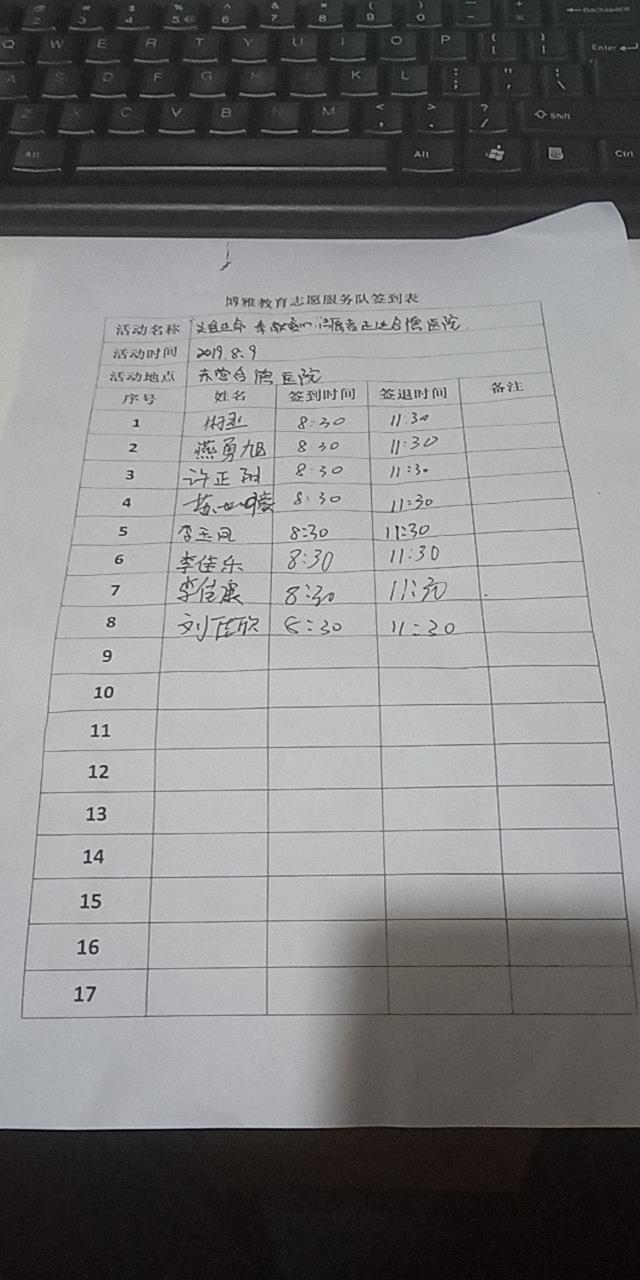 Backspace
Q W E R T Y U I O P
Enter
A S D F G H J K L
Z X C V B N M Shift
Alt Alt Ctrl
博雅教育志愿服务队签到表
活动名称 合德医院
活动时间 2019.8.9
活动地点 东营合德医院
序号 姓名 签到时间 签退时间 备注
1 8:30 11:30
2 燕勇旭 8:30 11:30
3 许正 8:30 11:30
4 8:30 11:30
5 李玉凤 8:30 11:30
6 李佳乐 8:30 11:30
7 李佳震 8:30 11:30
8 刘佳欣 8:30 11:30
9
10
11
12
13
14
15
16
17